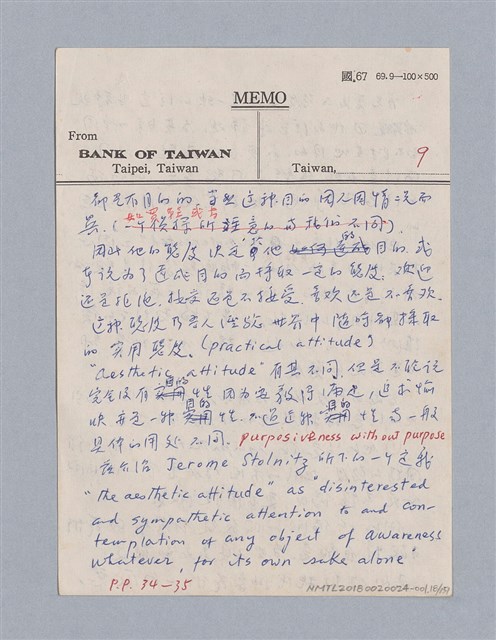 國.67 69.9—100×500
MEMO
From
BANK OF TAIWAN
Taipei, Taiwan
Taiwan,
9
都是有目的的，当然这种目的因人因情况而
異。(一
因此他的態度决定了他的目的，或
者说为了達成目的而採取一定的態度。欢迎
还是拒绝，接受还是不接受，喜欢还是不喜欢，
这种態度乃吾人经验世界中随時都採取
的实用態度。(practical attitude)
"aesthetic attitude" 有其不同，但是不能说
完全没有目的性，因为
快亦是一种目的性，不过这种目的性与一般
具体的用处不同。purposiveness without purpose
Jerome Stolnitz 所下的一个定義
"the aesthetic attitude" as "disinterested
and sympathetic attention to and con-
templation of any object of awareness
whatever, for its own sake alone"
P.P. 34—35
NMTL20180020024-001